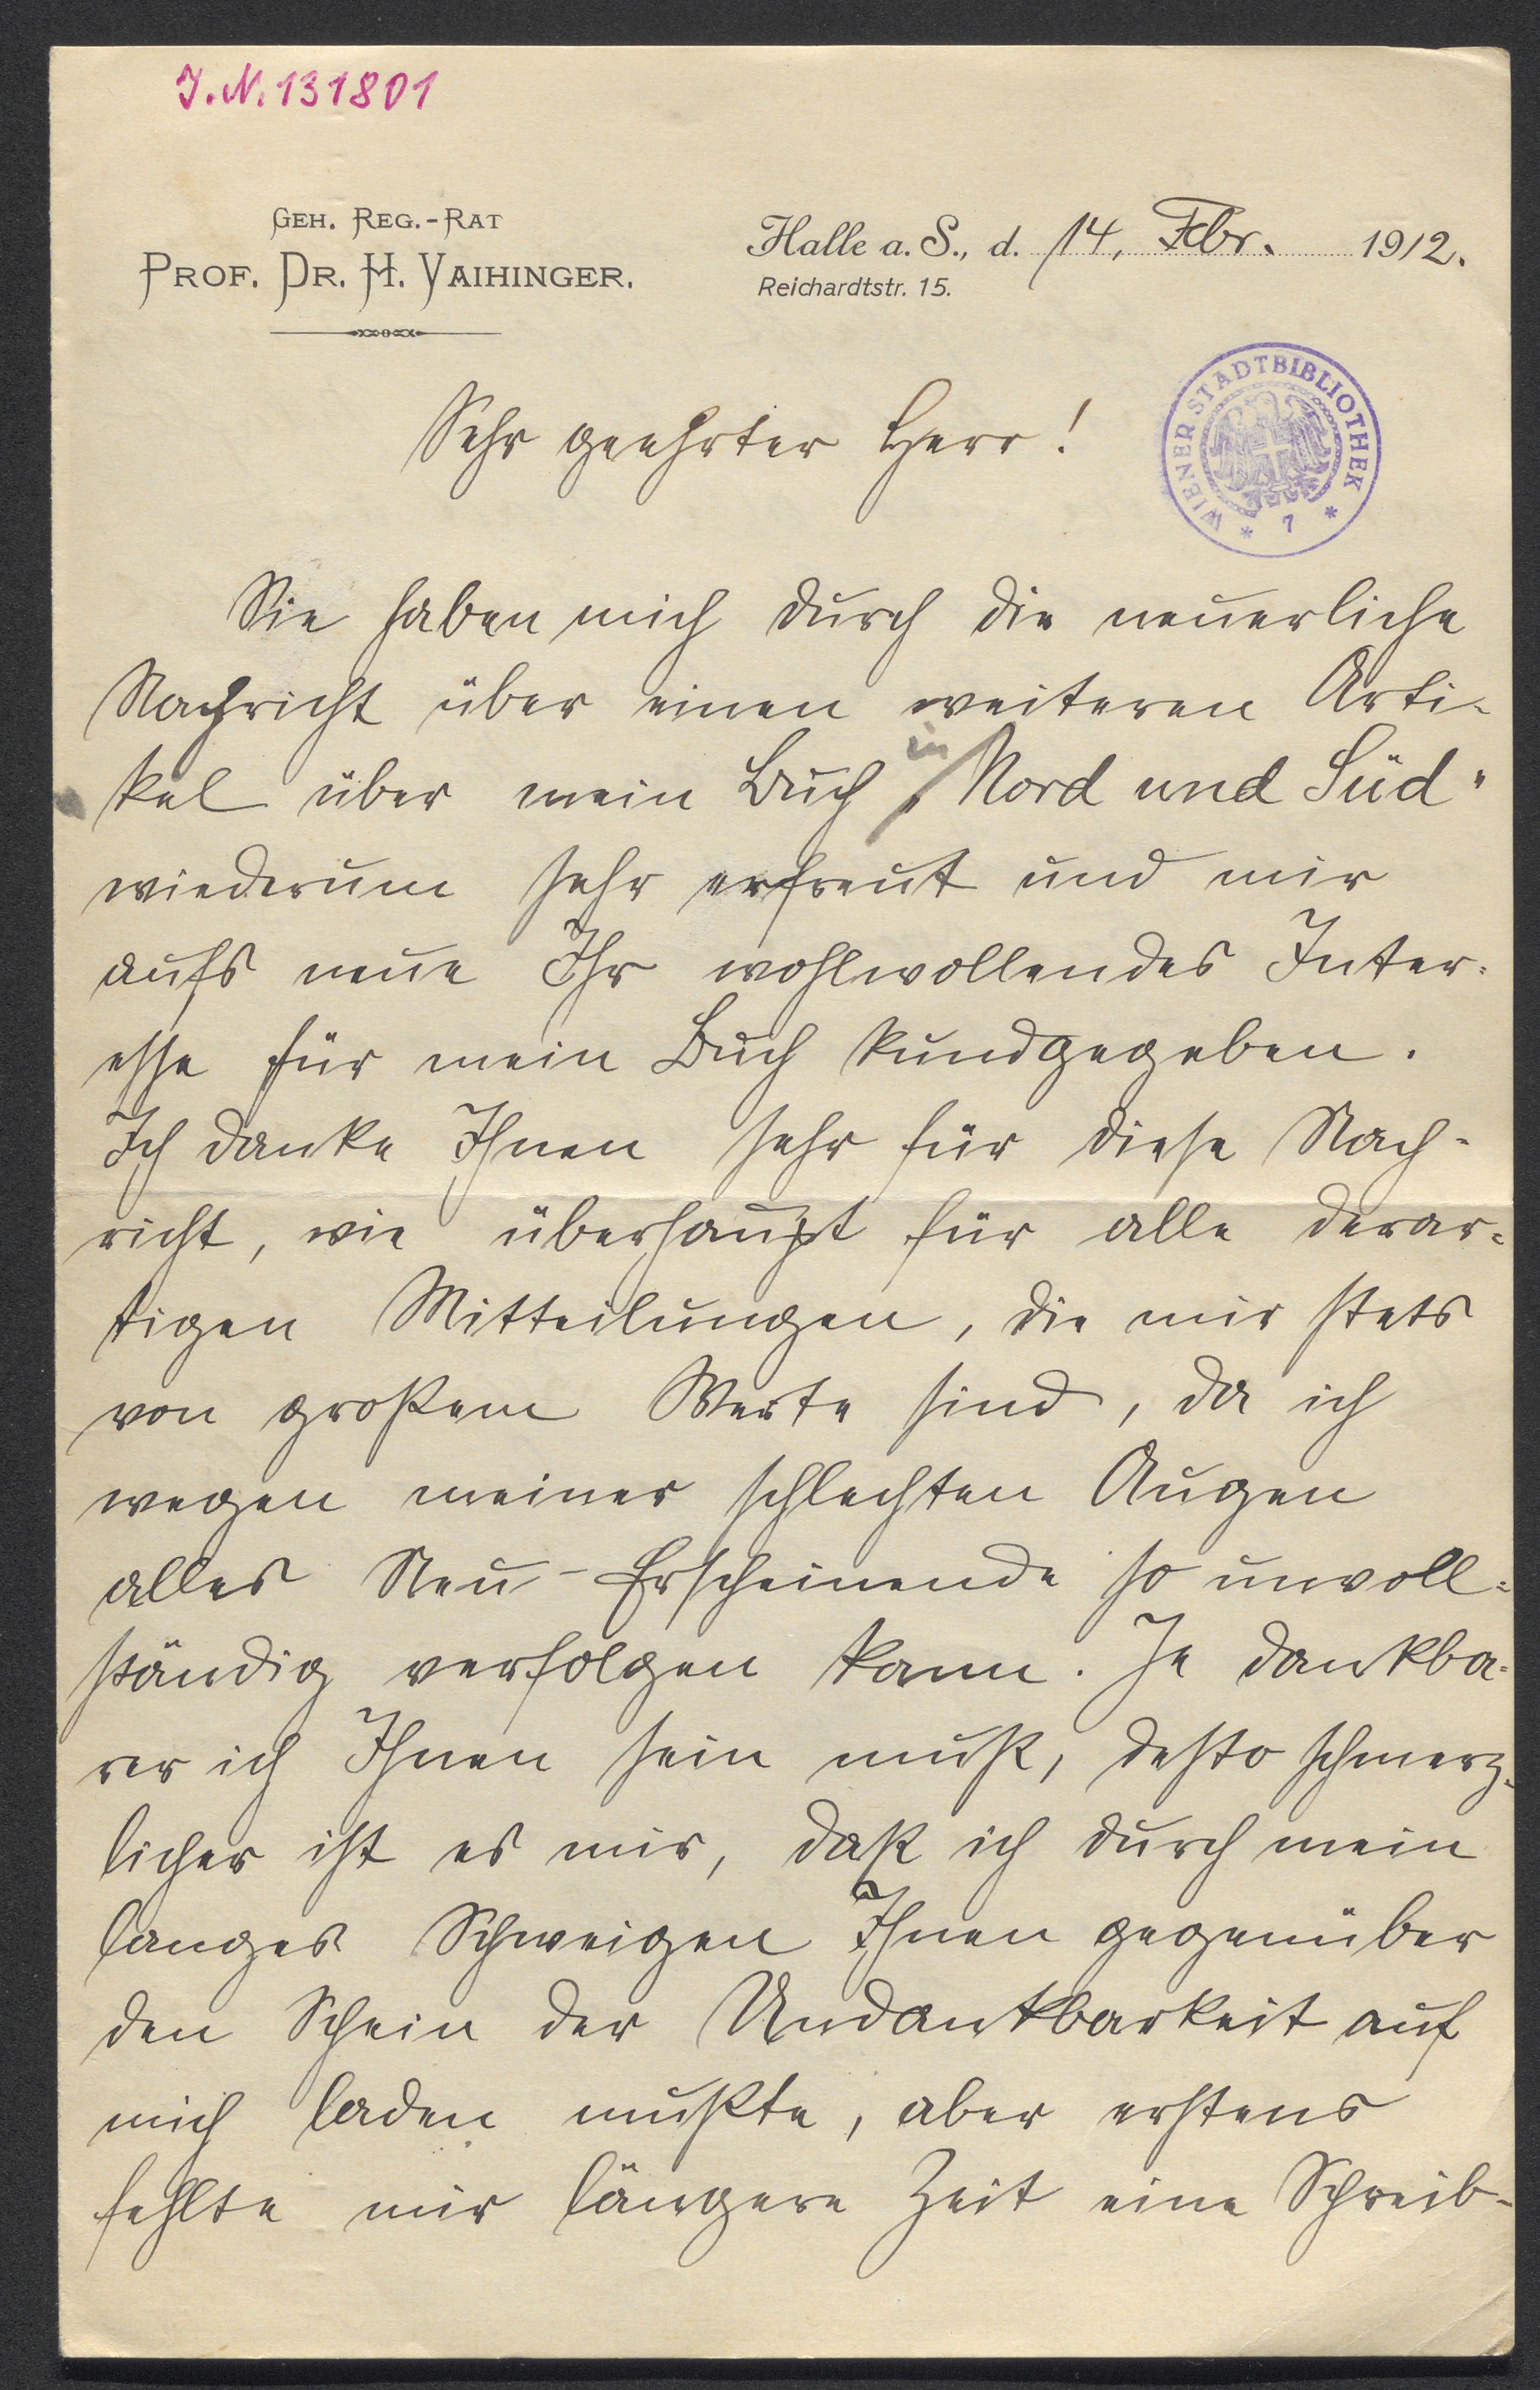 J. N. 131801
GEH. REG.-RAT
PROF. DR. H. VAIHINGER.
Halle a. S., d. 14. Febr. 1912.
Reichardtstr. 15.
WIENER STADTBIBLIOTHEK
* 7 *
Sehr geehrter Herr!
Sie haben mich durch die neuerliche
Nachricht über einen weiteren Arti-
in
kel über mein Buch „Nord und Süd"
wiederum sehr erfreut und mir
aufs neue Ihr wohlwollendes Inter-
esse für mein Buch kundgegeben.
Ich danke Ihnen sehr für diese Nach-
richt, wie überhaupt für alle derar-
tigen Mitteilungen, die mir stets
von großem Werte sind, da ich
wegen meiner schlechten Augen
alles Neu-Erscheinende so unvoll-
ständig verfolgen kann. Je dankba-
rer ich Ihnen sein muß, desto schmerz-
licher ist es mir, daß ich durch mein
langes Schweigen Ihnen gegenüber
den Schein der Undankbarkeit auf
mich laden mußte, aber erstens
fehlte mir längere Zeit eine Schreib-